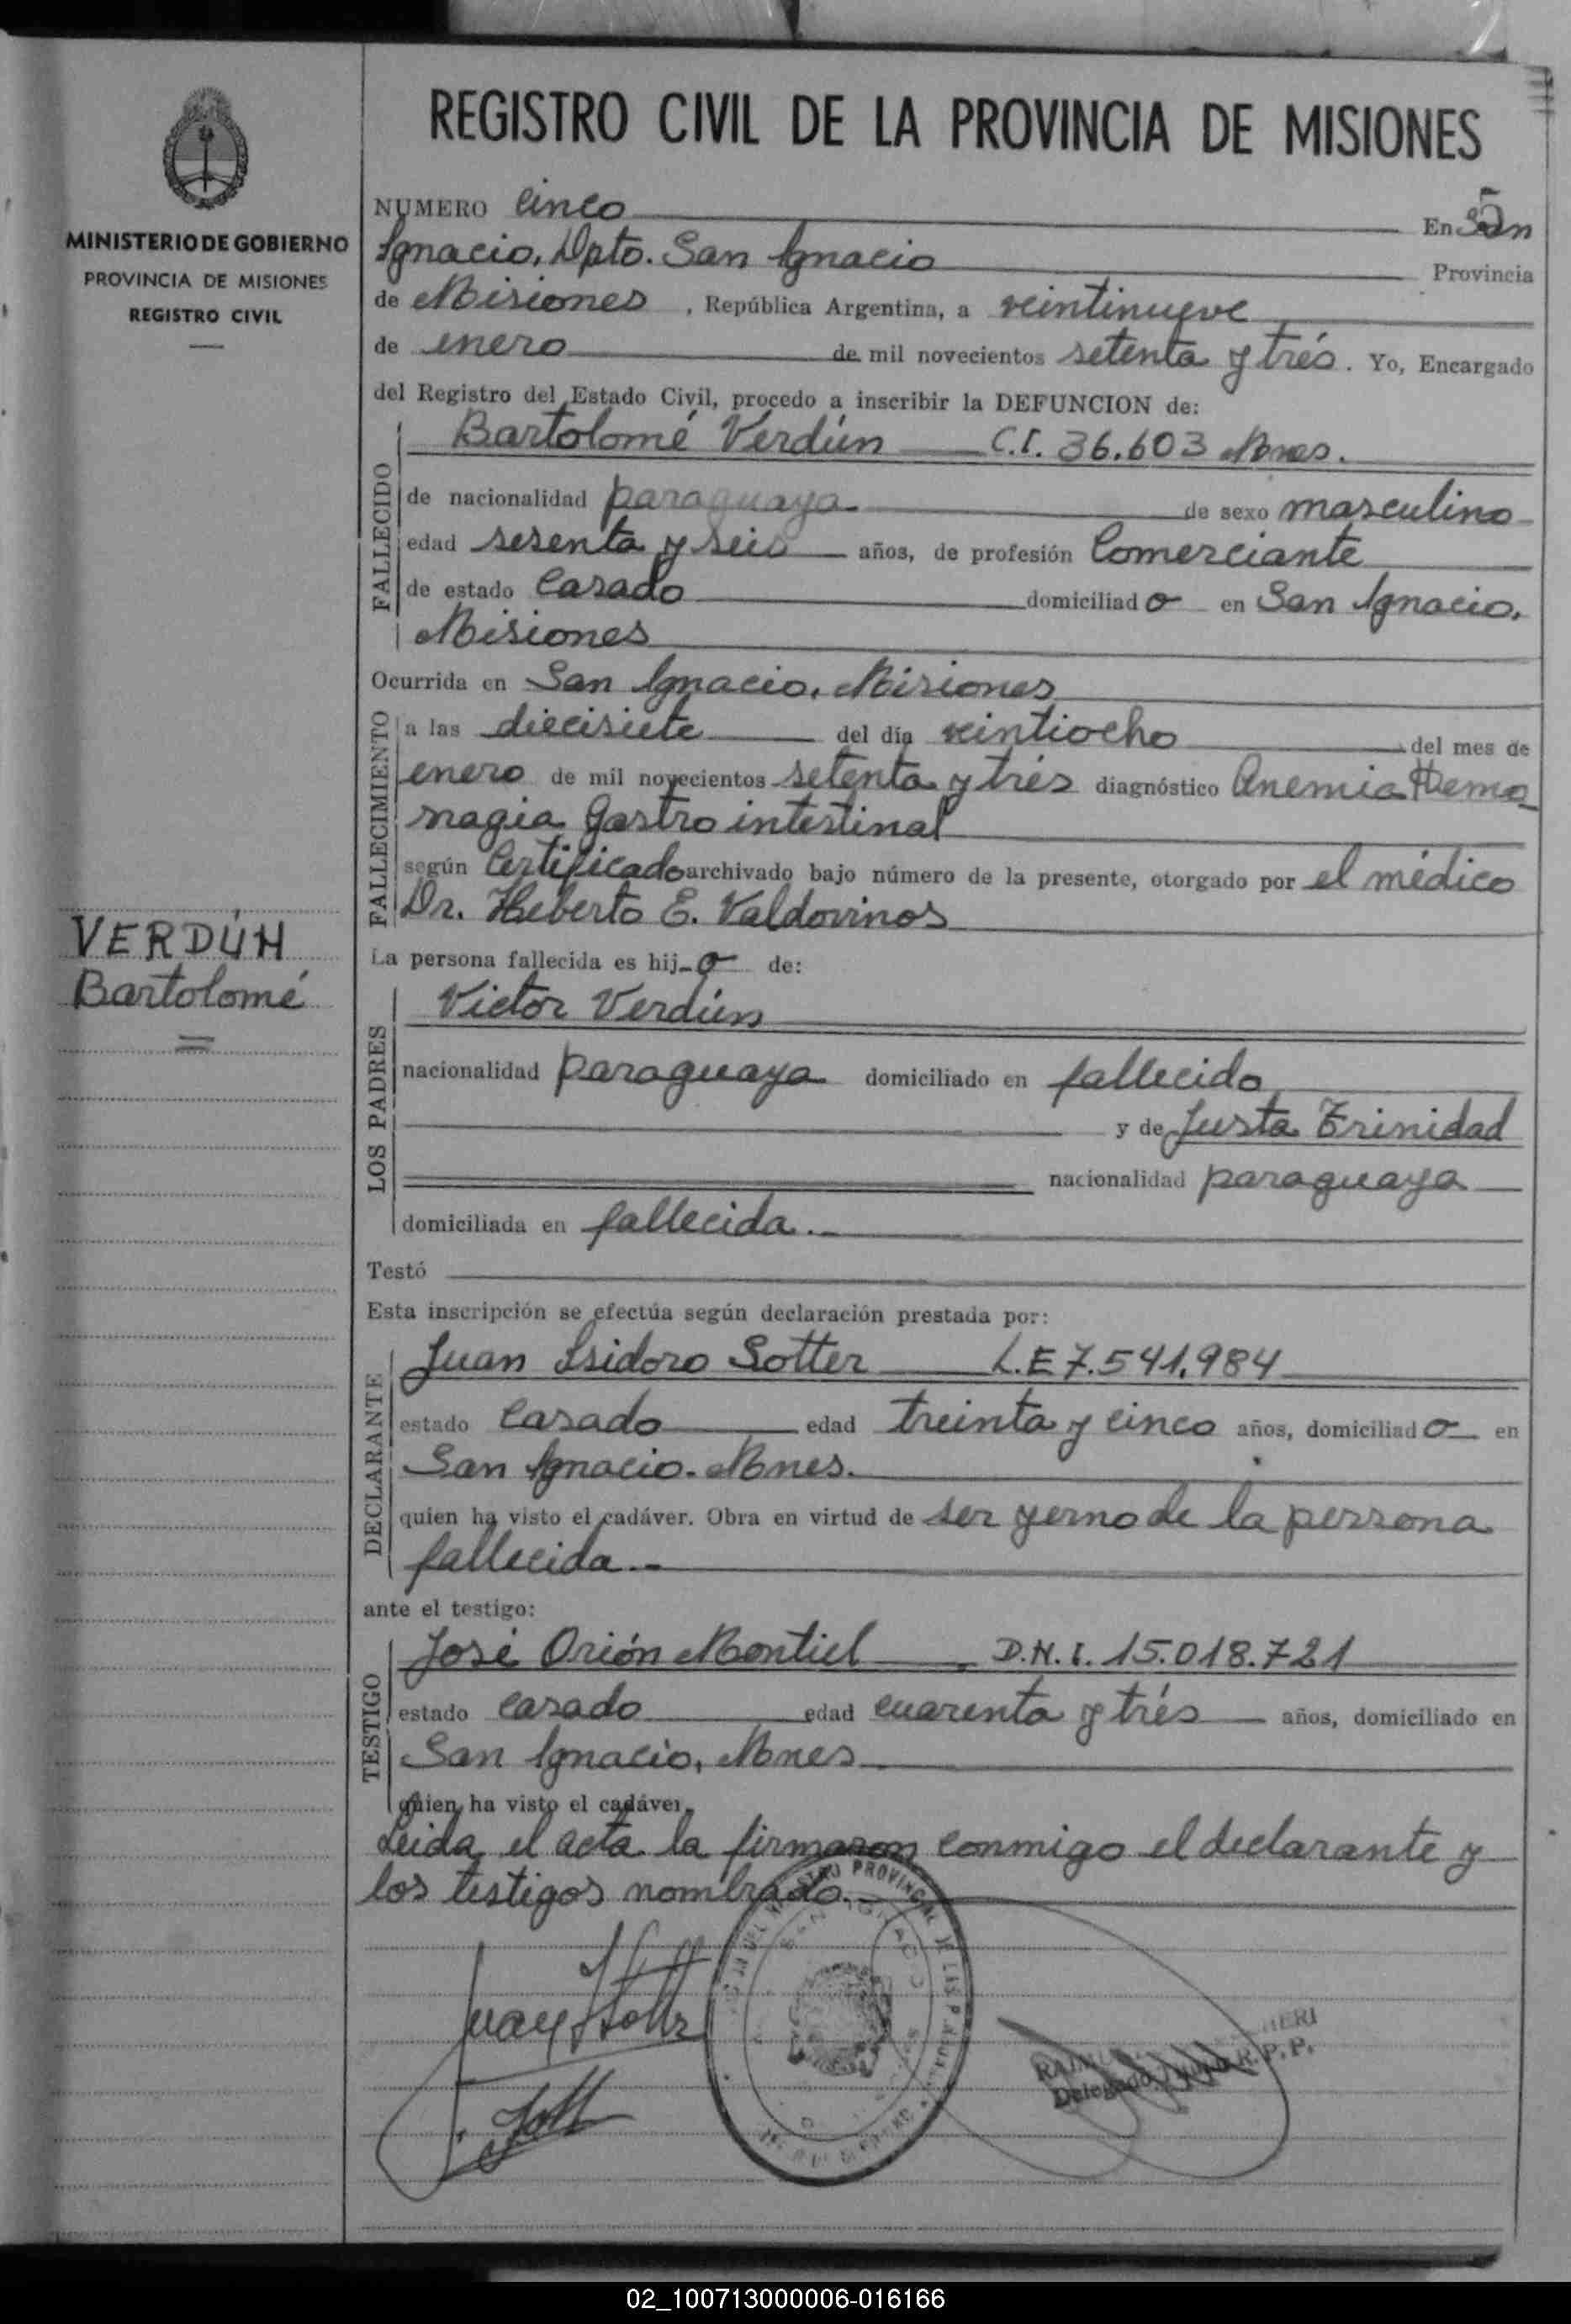 REGISTRO CIVIL DE LA PROVINCIA DE MISIONES
MINISTERIO DE GOBIERNO
PROVINCIA DE MISIONES
REGISTRO CIVIL
VERDÚN
Bartolomé
5
NUMERO Cinco En San
Ignacio, Dpto. San Ignacio Provincia
de Misiones, República Argentina, a veintinueve
de enero de mil novecientos setenta y trés. Yo, Encargado
del Registro del Estado Civil, procedo a inscribir la DEFUNCION de:
FALLECIDO
Bartolomé Verdún C.I. 36.603 Mnes.
de nacionalidad paraguaya de sexo masculino
edad sesenta y seis años, de profesión Comerciante
de estado Casado domiciliado en San Ignacio,
Misiones
Ocurrida en San Ignacio, Misiones
FALLECIMIENTO
a las diecisiete del día veintiocho del mes de
enero de mil novecientos setenta y trés diagnóstico Anemia Hemo
rragia Gastro intestinal
según Certificado archivado bajo número de la presente, otorgado por el médico
Dr. Heberto E. Valdovinos
La persona fallecida es hijo de:
LOS PADRES
Victor Verdún
nacionalidad paraguaya domiciliado en fallecido
y de Justa Trinidad
nacionalidad paraguaya
domiciliada en fallecida.-
Testó
Esta inscripción se efectúa según declaración prestada por:
DECLARANTE
Juan Isidoro Sotter L.E 7.541.984
estado Casado edad treinta y cinco años, domiciliado en
San Ignacio. Mnes.
quien ha visto el cadáver. Obra en virtud de ser yerno de la persona
fallecida.-
ante el testigo:
TESTIGO
José Orión Montiel D.N.I. 15.018.721
estado casado edad cuarenta y trés años, domiciliado en
San Ignacio, Mnes
quien ha visto el cadáver.
Leida el acta la firmaron conmigo el declarante y
los testigos nombrado.-
Delegado R.P.P.
02_100713000006-016166